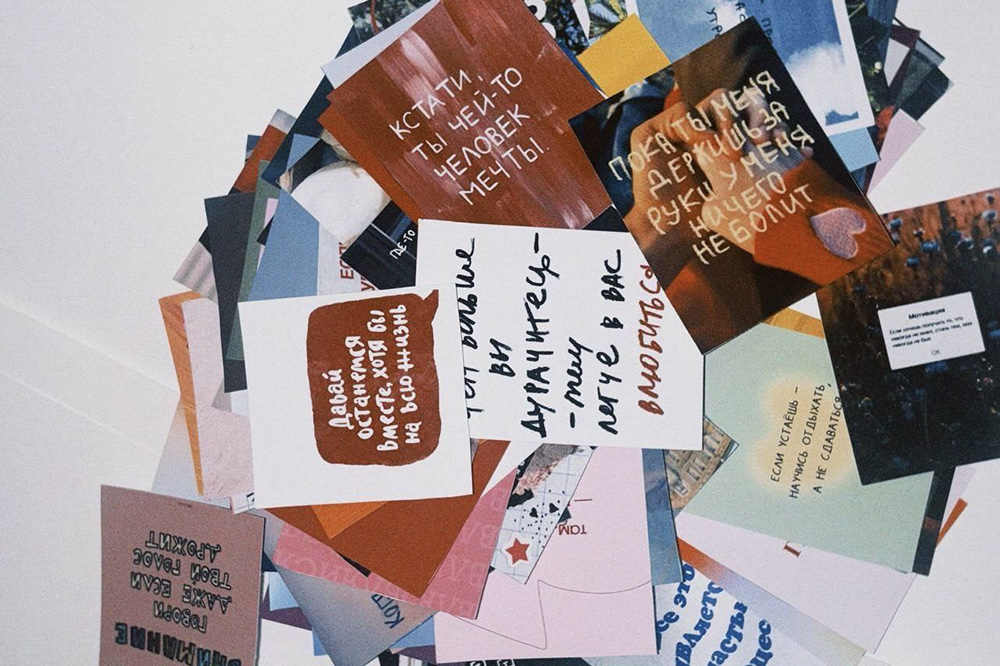 КСТАТИ,
ТЫ ЧЕЙ-ТО
ЧЕЛОВЕК
МЕЧТЫ.
ПОКА ТЫ МЕНЯ
ДЕРЖИШЬ ЗА
РУКИ У МЕНЯ
НИЧЕГО
НЕ БОЛИТ
ГДЕ-ТО
больше
вы
дурачитесь-
-тем
легче в вас
влюбиться
Давай
останемся
вместе, хотя бы
на всю жизнь
Мотивация
Если хочешь получить то, что
никогда не имел, стань тем, кем
никогда не был
ОК
ЕСЛИ УСТАЁШЬ –
НАУЧИСЬ ОТДЫХАТЬ,
А НЕ СДАВАТЬСЯ
там
ГОВОРИ
ДАЖЕ ЕСЛИ
ТВОЙ ГОЛОС
ДРОЖИТ
это